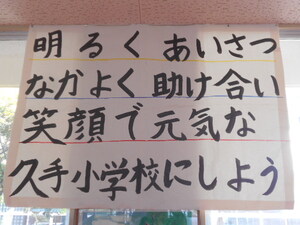 明るく あいさつ
なかよく 助け合い
笑顔で元気な
久手小学校にしよう